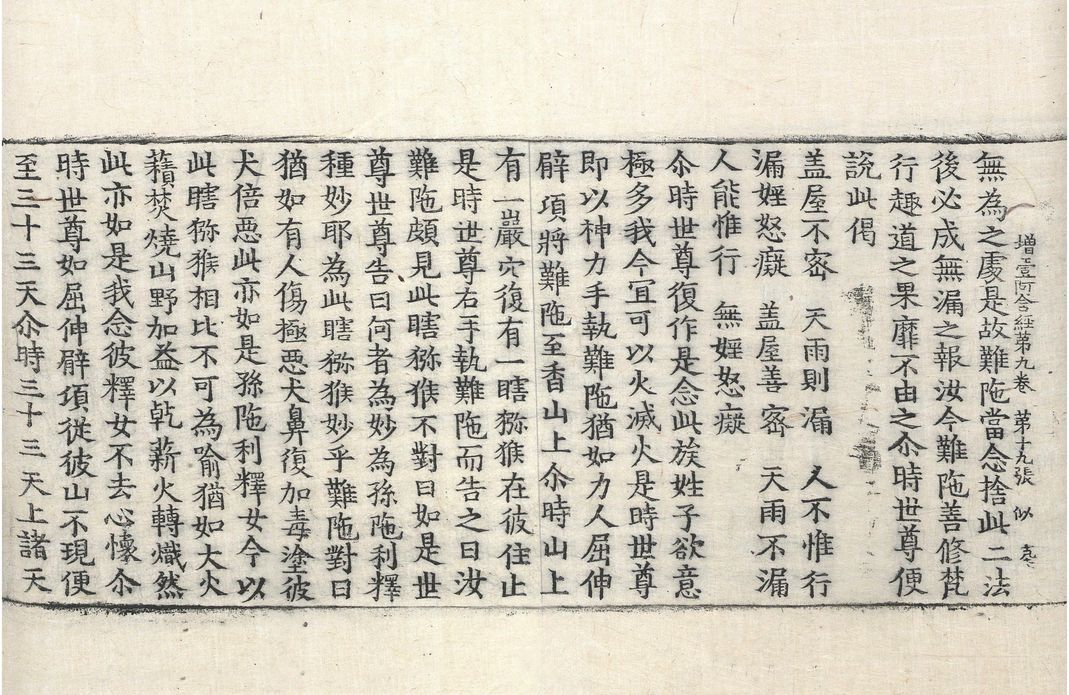 增壹阿含經第九卷　第十九張　似
無為之處是故難陁當念捨此二法
後必成無漏之報汝今難陁善修梵
行趣道之果靡不由之尒時世尊便
說此偈
盖屋不密　天雨則漏　人不惟行
漏婬怒癡　盖屋善密　天雨不漏
人能惟行　無婬怒癡
尒時世尊復作是念此族姓子欲意
極多我今冝可以火滅火是時世尊
即以神力手執難陁猶如力人屈伸
臂項將難陁至香山上尒時山上
有一巖穴復有一瞎猕猴在彼住止
是時世尊右手執難陁而告之曰汝
難陁頗見此瞎猕猴不對曰如是世
尊世尊告曰何者為妙為孫陁利釋
種妙耶為此瞎猕猴妙乎難陁對曰
猶如有人傷極惡犬鼻復加毒塗彼
犬倍惡此亦如是孫陁利釋女今以
此瞎猕猴相比不可為喻猶如大火
𧂐焚燒山野加益以乹薪火轉熾然
此亦如是我念彼釋女不去心懷尒
時世尊如屈伸臂項從彼山不現便
至三十三天尒時三十三天上諸天